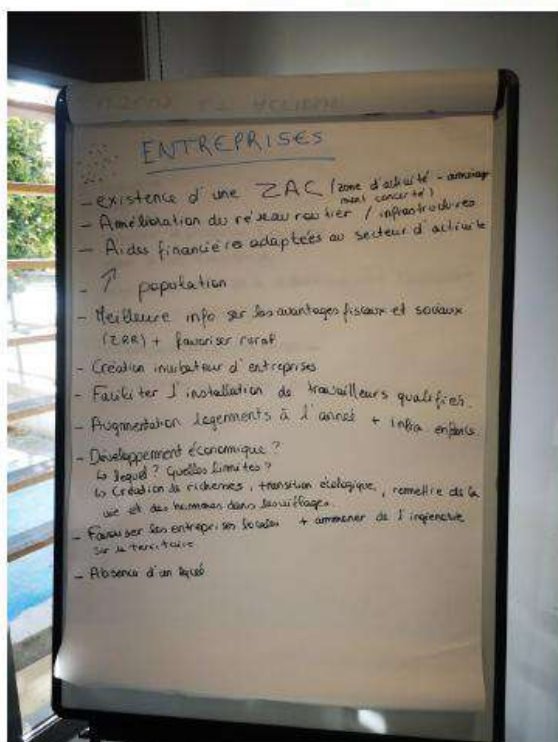 ENTREPRISES
- existence d'une ZAC (zone d'activité - aménage
ment concerté)
- Amélioration du réseau routier / infrastructures
- Aides financières adaptées au secteur d'activité
- ↗ population
- Meilleure info sur les avantages fiscaux et sociaux
(ZRR) + favoriser rural
- Création incubateur d'entreprises
- Faciliter l'installation de travailleurs qualifiés
- Augmentation logements à l'année + infra enfance
- Développement économique ?
↳ lequel ? Quelles limites ?
↳ Création de richesses, transition écologique, remettre de la
vie et des hommes dans les villages.
- Favoriser les entreprises locales + ammener de l'ingienerie
sur le territoire
- Absence d'un lycée